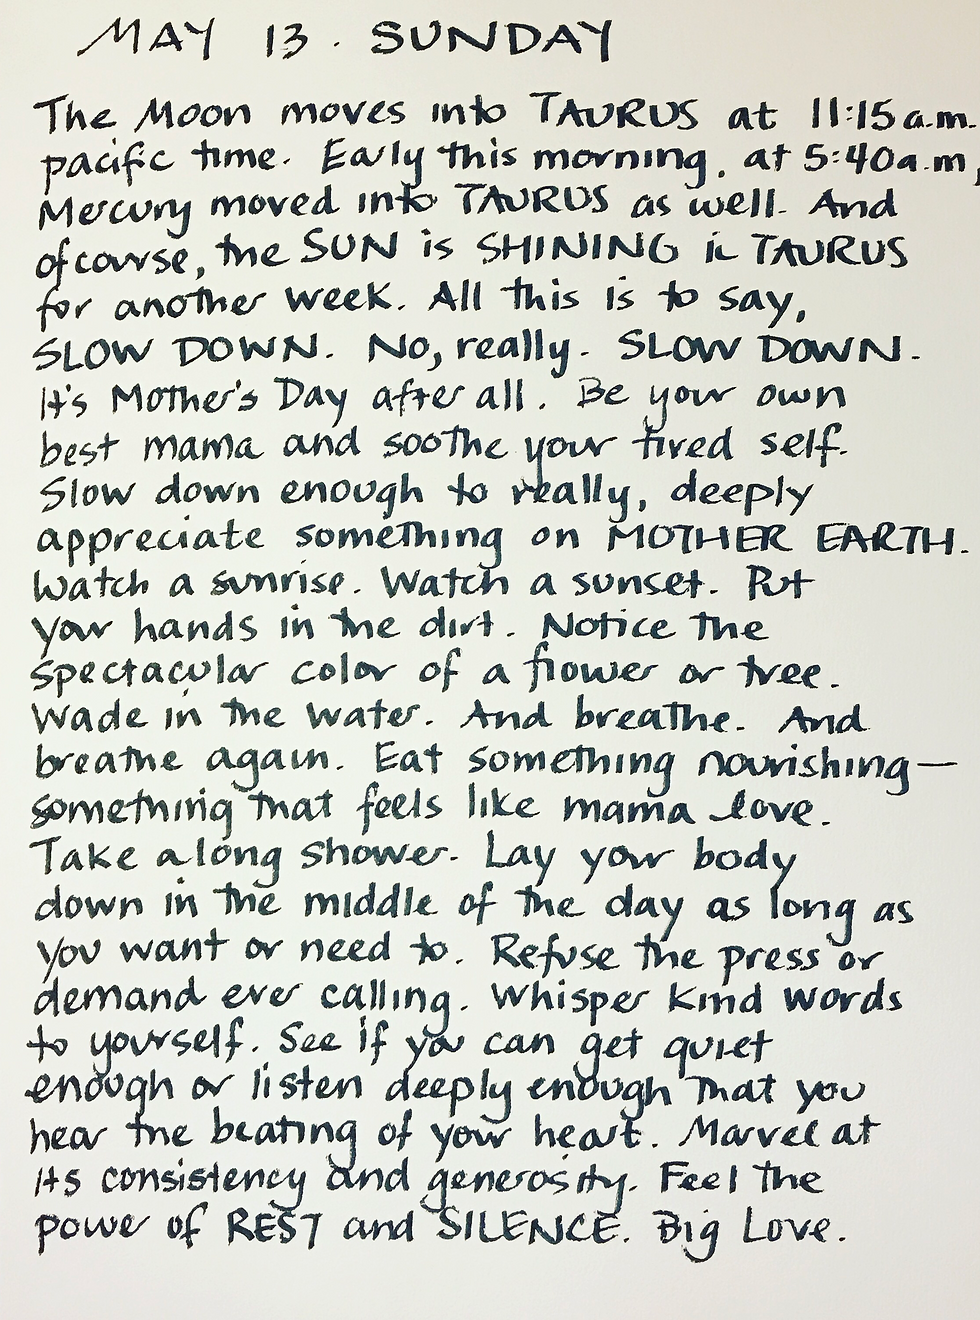 MAY 13 . SUNDAY
The Moon moves into TAURUS at 11:15 a.m.
pacific time. Early this morning, at 5:40 a.m,
Mercury moved into TAURUS as well. And
of course, the SUN is SHINING in TAURUS
for another week. All this is to say,
SLOW DOWN. No, really. SLOW DOWN.
It's Mother's Day after all. Be your own
best mama and soothe your tired self.
Slow down enough to really, deeply
appreciate something on MOTHER EARTH.
Watch a sunrise. Watch a sunset. Put
your hands in the dirt. Notice the
spectacular color of a flower or tree.
Wade in the water. And breathe. And
breathe again. Eat something nourishing—
something that feels like mama love.
Take a long shower. Lay your body
down in the middle of the day as long as
you want or need to. Refuse the press or
demand ever calling. Whisper kind words
to yourself. See if you can get quiet
enough or listen deeply enough that you
hear the beating of your heart. Marvel at
its consistency and generosity. Feel the
power of REST and SILENCE. Big Love.